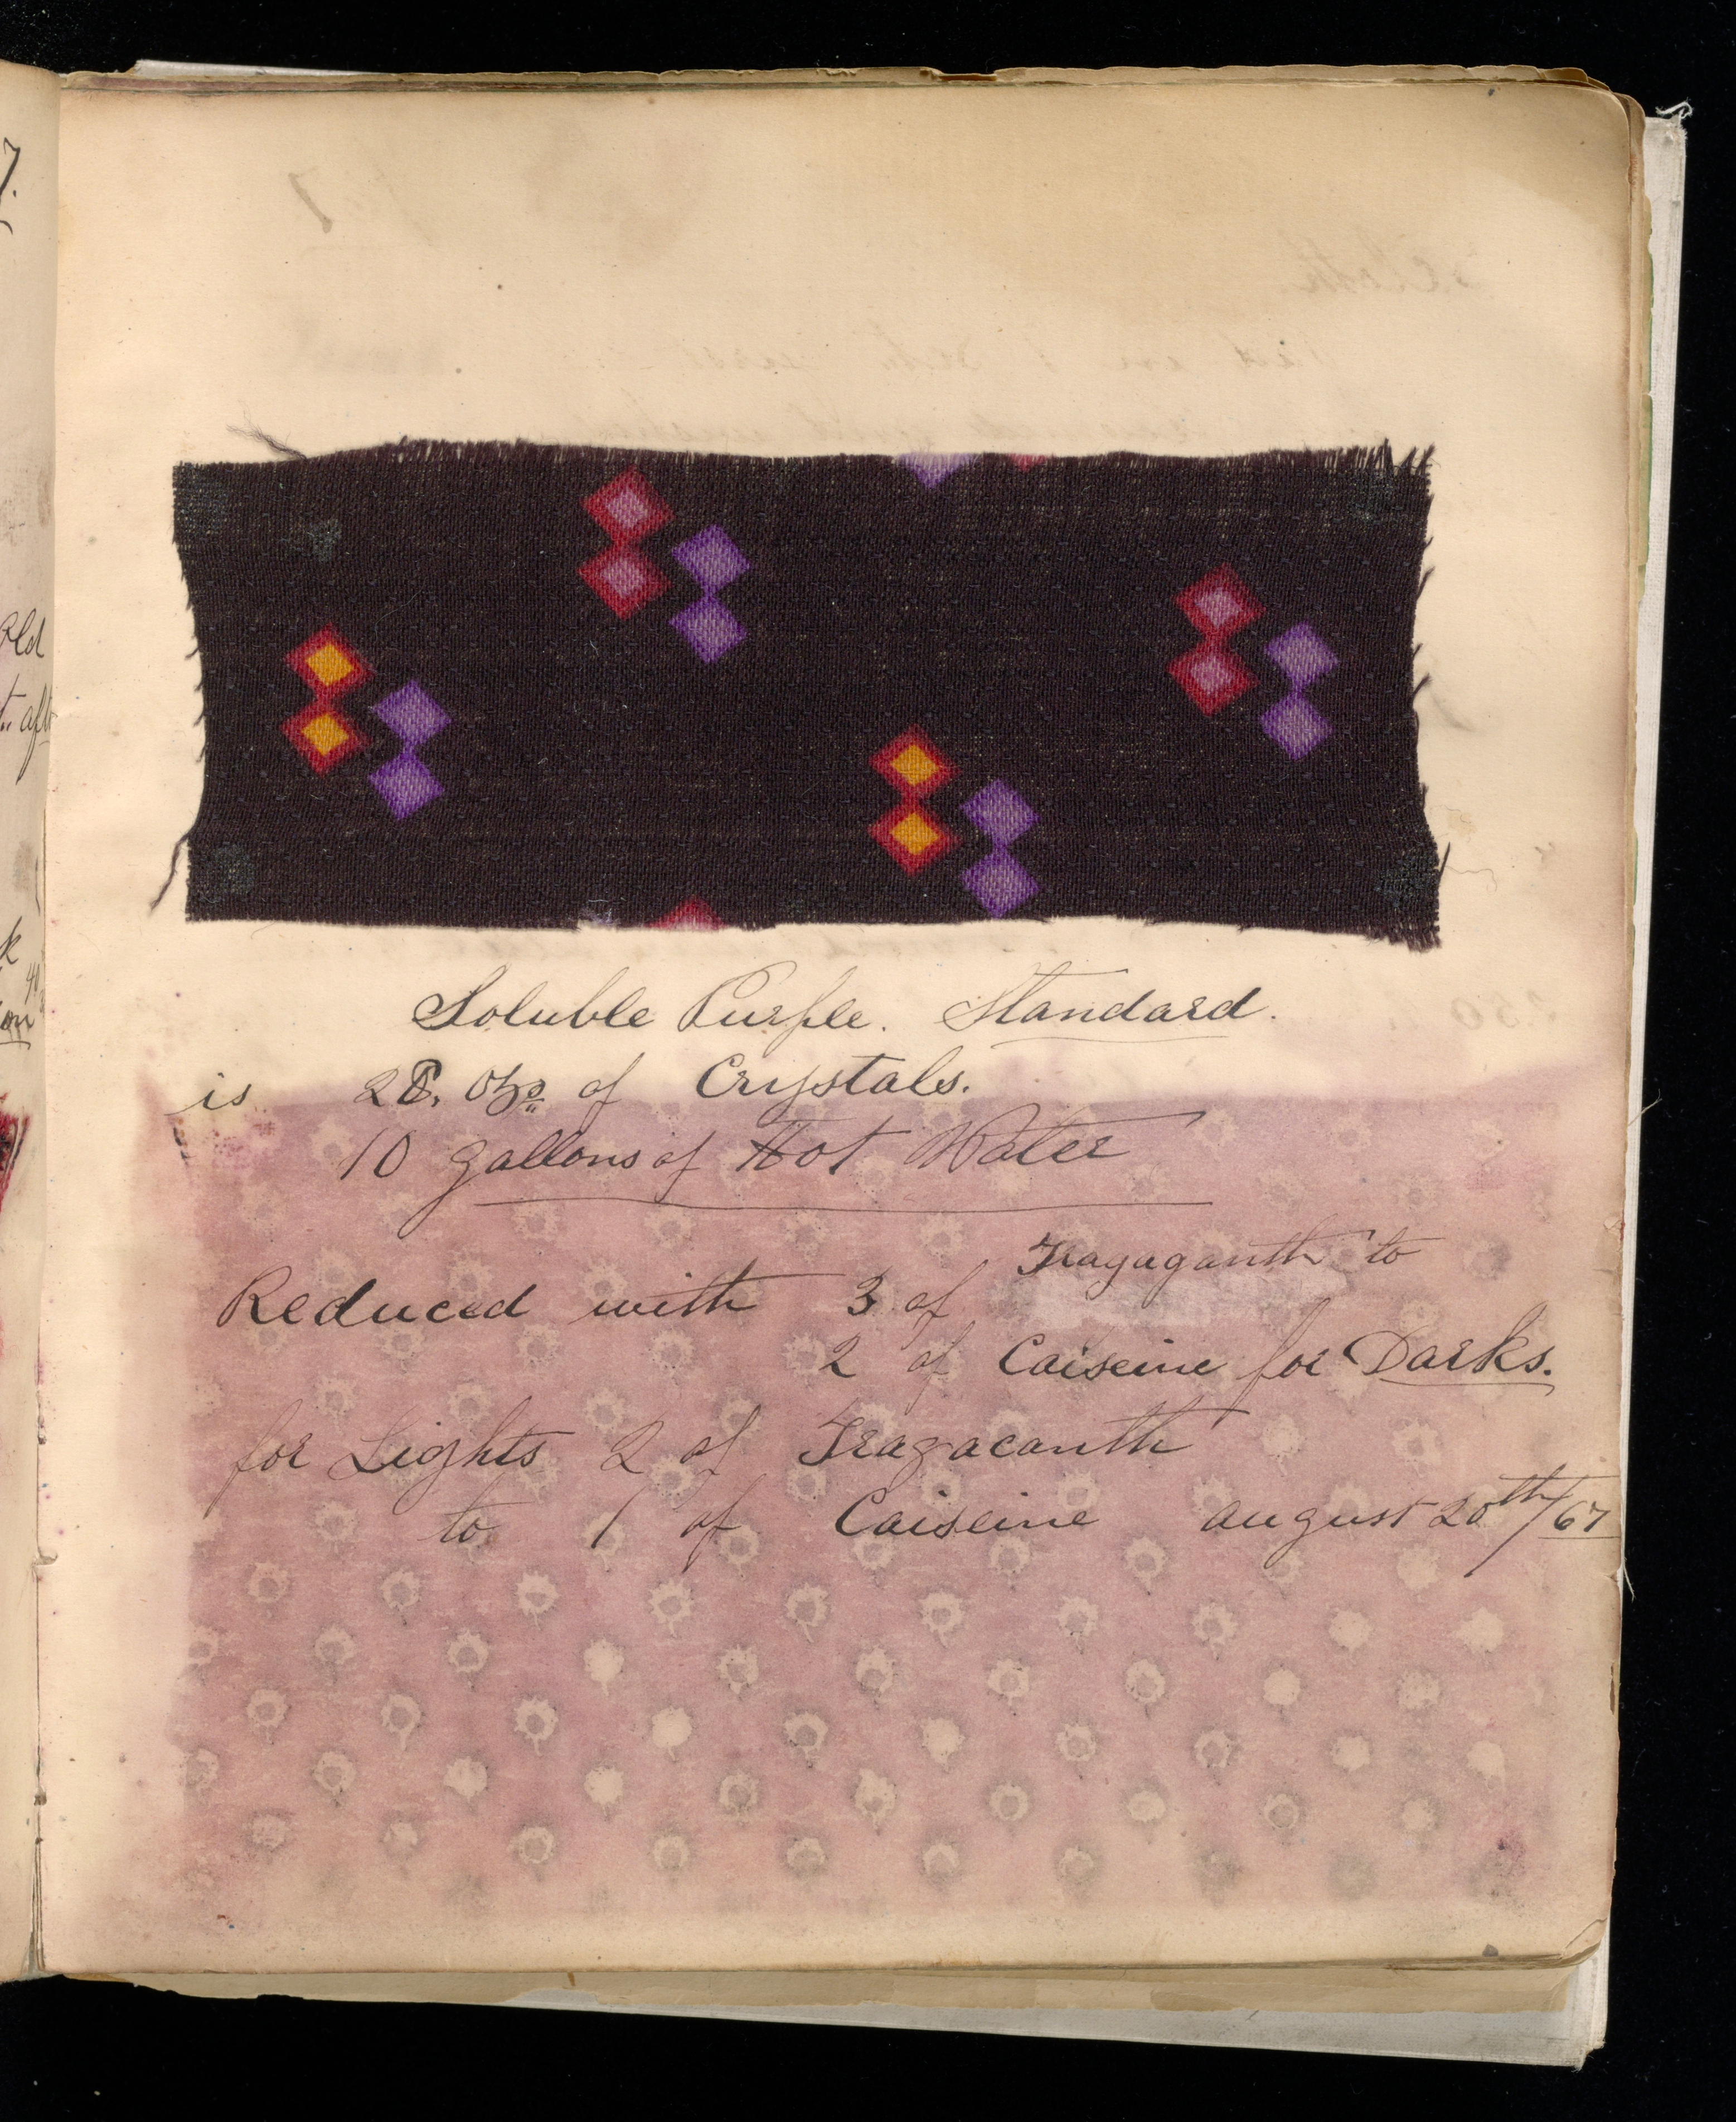 Soluble Purple. Standard.
is 28. Ozs of Crystals.
10 gallons of Hot Water
Tragaganth to
Reduced with 3 of
2 of Caiseine for Darks.
for Lights 2 of Tragacanth
to 1 of Caiseine august 20th/67
Old